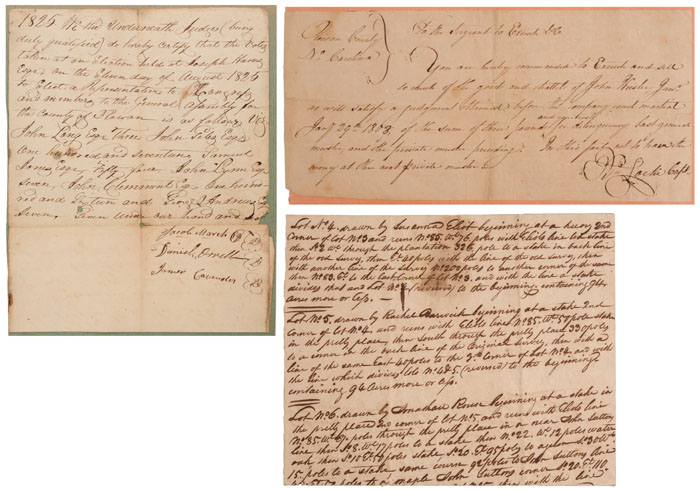 1825 We the Underneath Judges (being
duly qualified) do hereby certify that the Votes
taken at an Election held at Joseph
Esqr. On the Eleven day of August 1825
to Elect a Representative to Congress
and members to the General Assembly for
the County of Rowan is as follows (Viz)
John Long Esqr. Three John Giles Esqr.
One hundred and seventeen Samuel
Jones Esqr. Fifty four John Lynn Esqr
Seven, John Clement Esqr One hund
red and fifteen and Andrews
Seven. Given under our hand and
Jacob March
Daniel
James Cavender
Rowan County
No. Carolina
To the Serjent to Execute &c
You are hereby commanded to Execute and sell
so much of the goods and chattel of John Junr.
as will satisfy a judgement Obtained before the company court martial
Jany 29th 1808 of the sum of three pounds for Delinquency last general
muster, and the private muster preceding. In this fail not to have the
money at the next private muster
Locke Capt
Lot No. 4. drawn by Susanna Eliot beginning at a 2nd
corner of lot No 3 and runs No. 85. Wt. 76 poles with Eliots line to a stake
then So. 2 Wt. through the plantation 326 pole to a stake in back line
of the old survey, then Et. 48 poles with the line of the old survey, then
with another line of the survey No. 200 poles to another corner of the same
then No. 83. Et. to the Corner of lot No 3. and with the line
divides that and Lot No 4 (reversed) to the beginning containing 94
Acres more or less. —
Lot No. 5. drawn by Rachel beginning at a stake 2nd
corner of lot No 4. and runs with Eliots lines No 85. Wt. 59 poles stake
in the pretty place, then South through the pretty place 330 poles
to a corner in the back line of the Original Survey, then with a
line of the same East 40 poles to the 3rd corner of Lot No 4. and with
the line which divides lots No 4 & 5 (reversed) to the beginning
containing 94 Acres more or less.
Lot No 6. drawn by Jonathan beginning at a stake in
the pretty place 2nd corner of lot No 5. and runs with Eliots line
No 85. Wt. 67 poles through the pretty place in a near John Suttons
line then So. 8. Wt. 17 poles to a stake then No 22. Wt. 12 poles
oak then So. 10 Et. 59 poles stake So. 20. Et. 95 poles to a So. 30 Wt.
15. poles to a stake same course 92 poles to John Suttons line
poles to a maple John Suttons corner So. 20. Et.
with the line